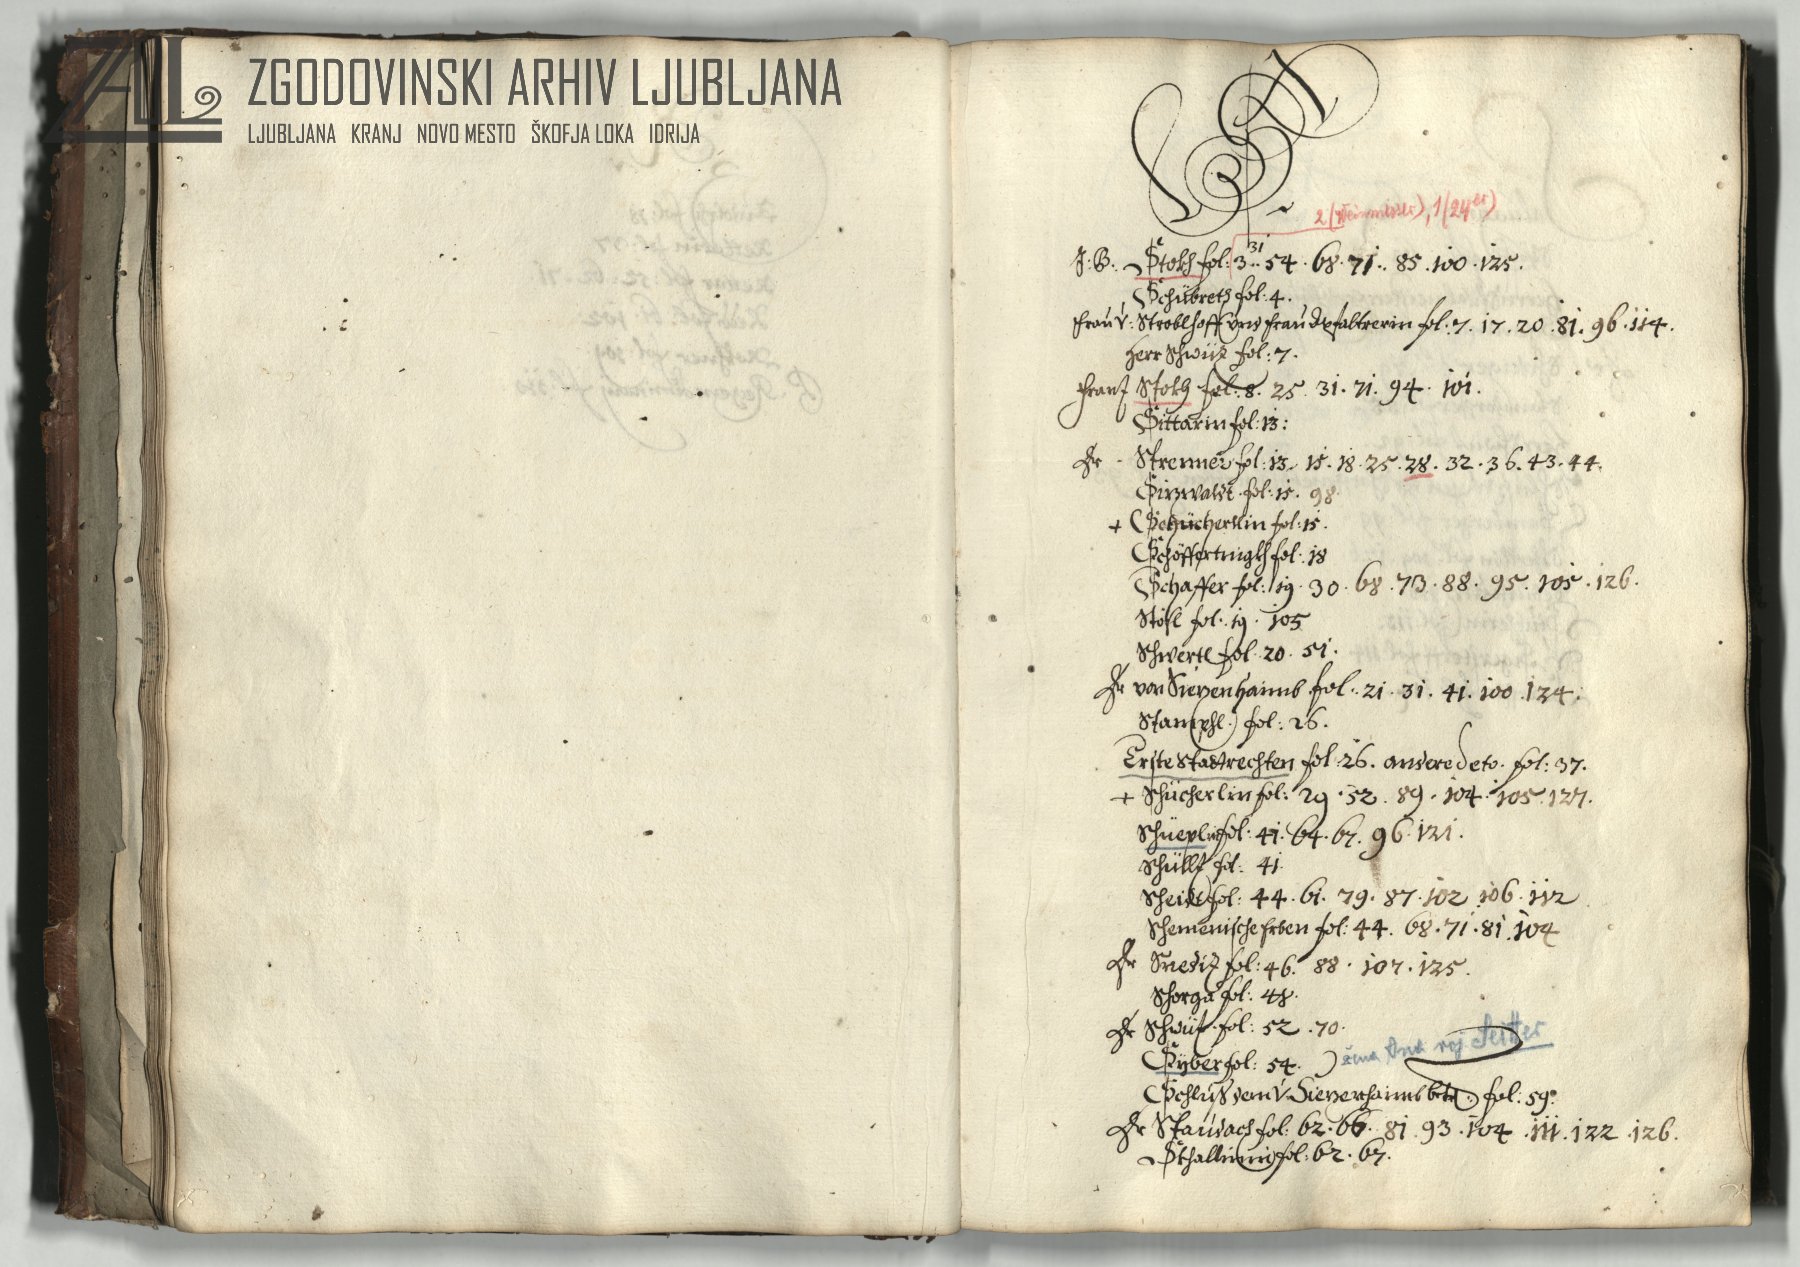 ZGODOVINSKI ARHIV LJUBLJANA
LJUBLJANA KRANJ NOVO MESTO ŠKOFJA LOKA IDRIJA
S
2 , 1 (24er)
31
J: B: Stokh fol: 3 . 54 . 68 . 71 . 85 . 100 . 125 .
Schübreth fol: 4 .
Frau V: Stroblhoff und Frau fol: 7 . 17 . 20 . 81 . 96 . 114 .
Herr Schwitz fol: 7 .
Franz Stokh fol: 8 . 25 . 31 . 71 . 94 . 101 .
Sittarin fol: 13 :
Dr Strenner fol: 13 . 15 . 18 . 25 . 28 . 32 . 36 . 43 . 44 .
fol: 15 . 98
+ Schücherlin fol: 15 .
fol: 18
Schaffer fol: 19 . 30 . 68 . 73 . 88 . 95 . 105 . 126 .
Stösl fol: 19 . 105
Schwertl fol: 20 . 51 .
Dr von Sievenhaimb fol: 21 . 31 . 41 . 100 . 124 .
Stamphl fol: 26 .
Erste Stadtrechten fol: 26 . andere deto . fol: 37 .
+ Schücherlin fol: 29 . 52 . 89 . 104 . 105 . 127 .
fol: 41 . 64 . 67 . 96 . 121 .
Schültz fol: 41
Scheidt fol: 44 . 61 . 79 . 87 . 102 . 106 . 112
Schemenische Erben fol: 44 . 68 . 71 . 81 . 104
Dr fol: 46 . 88 . 107 . 125 .
Schorga fol: 48 .
Dr Schwitz fol: 52 . 70 .
Syber fol: 54 . žena Ana roj
Schlus dem V. Sievenhaimb fol: 59 .
Dr Staudach fol: 62 . 66 . 81 . 93 . 104 . 111 . 122 . 126 .
fol: 62 . 67 .